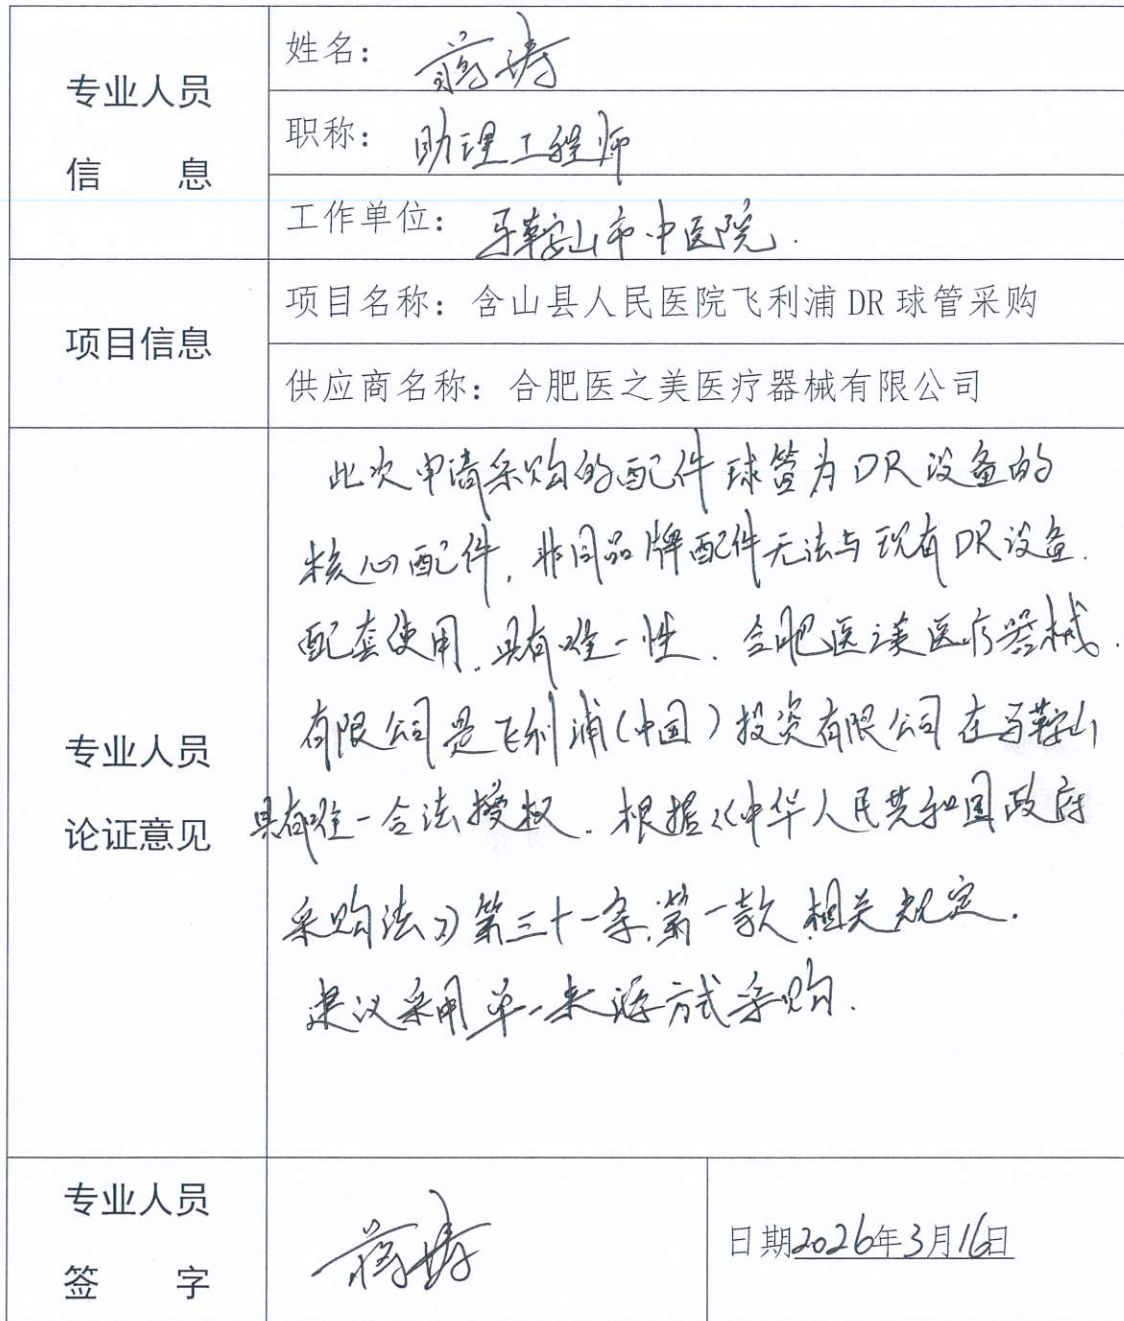 专业人员
信 息
姓名：蒋涛
职称：助理工程师
工作单位：马鞍山市中医院.
项目信息
项目名称：含山县人民医院飞利浦 DR 球管采购
供应商名称：合肥医之美医疗器械有限公司
专业人员
论证意见
此次申请采购的配件球管为DR设备的
核心配件，非同品牌配件无法与现有DR设备.
配套使用，具有唯一性. 合肥医之美医疗器械.
有限公司是飞利浦（中国）投资有限公司在马鞍山
具有唯一合法授权. 根据《中华人民共和国政府
采购法》第三十一条，第一款 相关规定.
建议采用单一来源方式采购.
专业人员
签 字
蒋涛
日期2026年3月16日